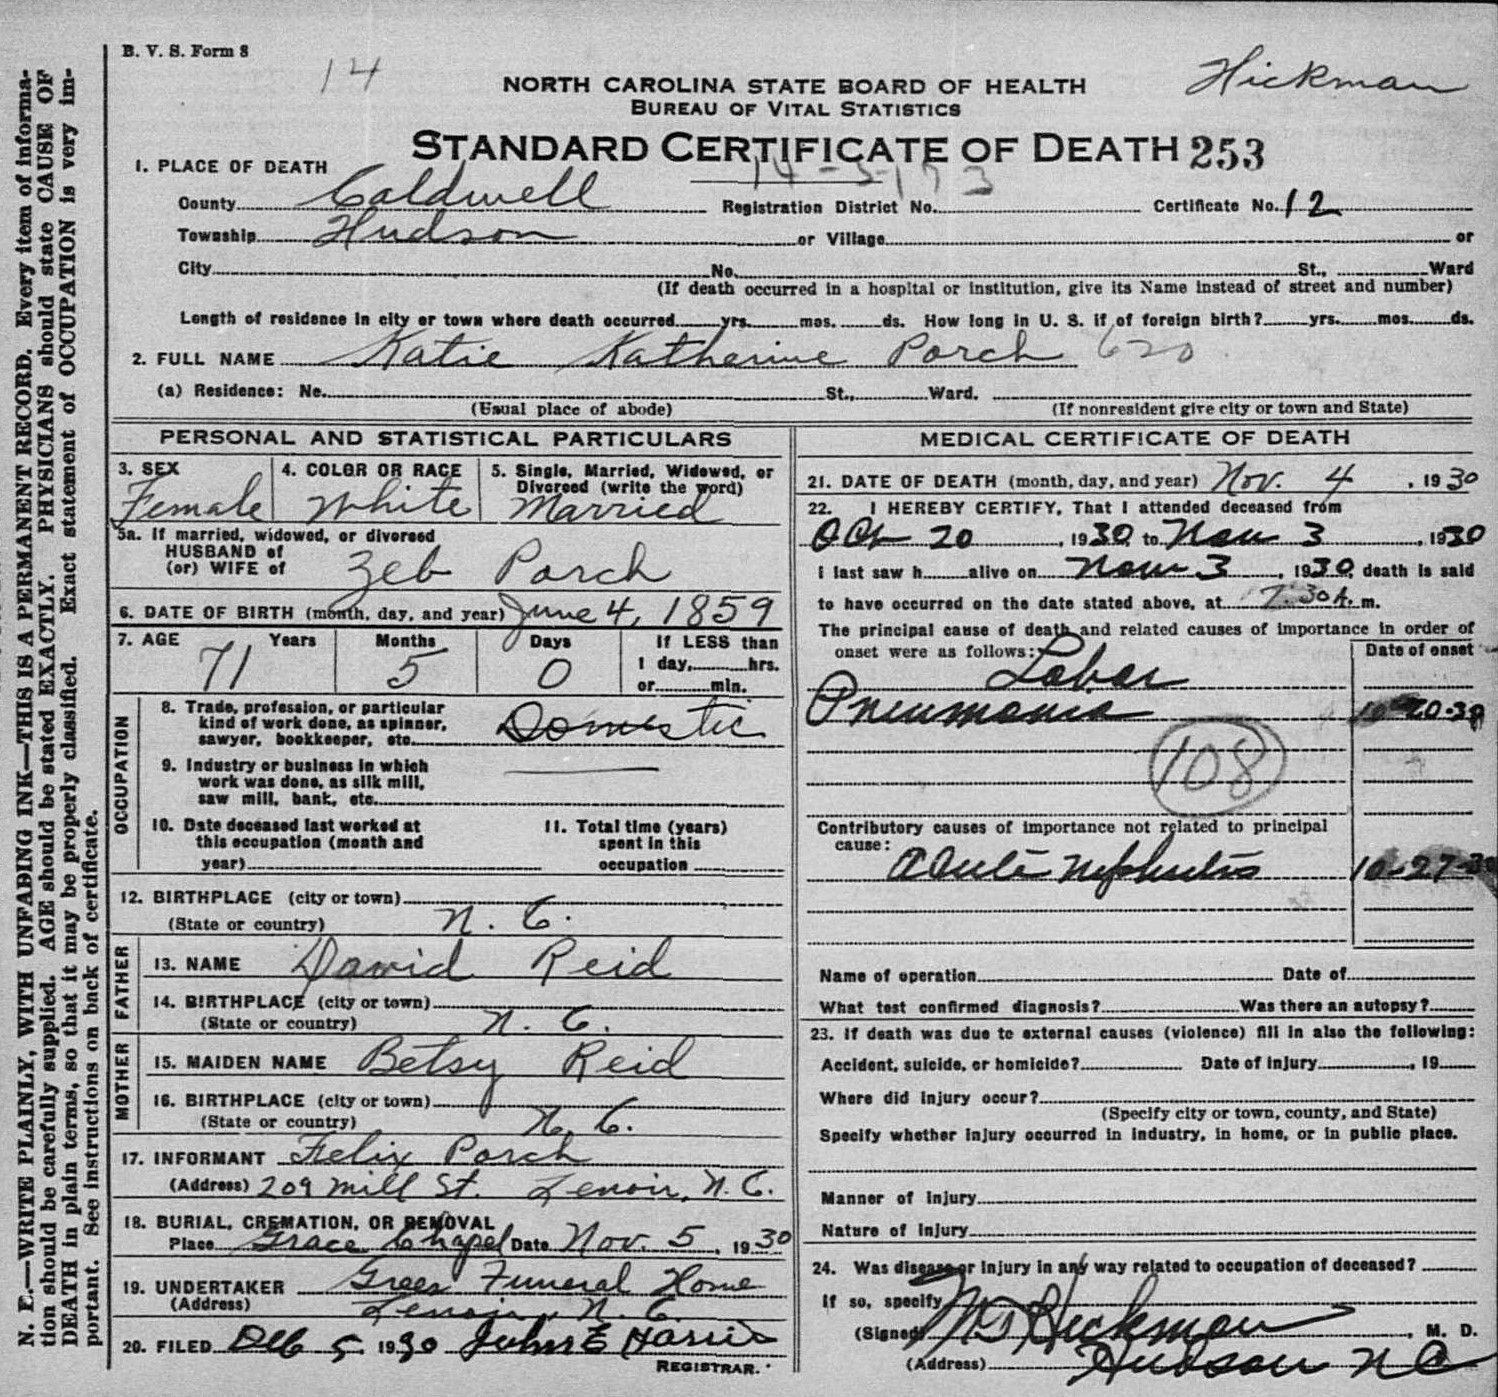 B. V. S. Form 8
14
Hickman
NORTH CAROLINA STATE BOARD OF HEALTH
BUREAU OF VITAL STATISTICS
STANDARD CERTIFICATE OF DEATH 253
1. PLACE OF DEATH
County Caldwell Registration District No. 14-5173 Certificate No. 12
Township Hudson or Village or
City No. St., Ward
(If death occurred in a hospital or institution, give its Name instead of street and number)
Length of residence in city or town where death occurred yrs. mos. ds. How long in U. S. if of foreign birth? yrs. mos. ds.
2. FULL NAME Katie Katherine Porch 620
(a) Residence: No. St., Ward.
(Usual place of abode) (If nonresident give city or town and State)
PERSONAL AND STATISTICAL PARTICULARS
3. SEX
Female
4. COLOR OR RACE
White
5. Single, Married, Widowed, or
Divorced (write the word)
Married
5a. If married, widowed, or divorced
HUSBAND of
(or) WIFE of Zeb Porch
6. DATE OF BIRTH (month, day, and year) June 4, 1859
7. AGE Years Months Days If LESS than
71 5 0 1 day, hrs.
or min.
OCCUPATION
8. Trade, profession, or particular
kind of work done, as spinner,
sawyer, bookkeeper, etc. Domestic
9. Industry or business in which
work was done, as silk mill,
saw mill, bank, etc.
10. Date deceased last worked at
this occupation (month and
year)
11. Total time (years)
spent in this
occupation
12. BIRTHPLACE (city or town)
(State or country) N. C.
FATHER
13. NAME David Reid
14. BIRTHPLACE (city or town)
(State or country) N. C.
MOTHER
15. MAIDEN NAME Betsy Reid
16. BIRTHPLACE (city or town)
(State or country) N. C.
17. INFORMANT Felix Porch
(Address) 209 Mill St. Lenoir, N. C.
18. BURIAL, CREMATION, OR REMOVAL
Place Grace Chapel Date Nov. 5, 1930
19. UNDERTAKER Greer Funeral Home
(Address) Lenoir, N. C.
20. FILED Dec 5 1930 John E Harris
REGISTRAR.
MEDICAL CERTIFICATE OF DEATH
21. DATE OF DEATH (month, day, and year) Nov. 4, 1930
22. I HEREBY CERTIFY, That I attended deceased from
Oct 20, 1930, to Nov 3, 1930
I last saw h alive on Nov 3, 1930, death is said
to have occurred on the date stated above, at 7.30 A. m.
The principal cause of death and related causes of importance in order of
onset were as follows: Date of onset
Lobar
Pneumonia 10-20-30
108
Contributory causes of importance not related to principal
cause:
Acute Nephritis 10-27-30
Name of operation Date of
What test confirmed diagnosis? Was there an autopsy?
23. If death was due to external causes (violence) fill in also the following:
Accident, suicide, or homicide? Date of injury, 19
Where did injury occur?
(Specify city or town, county, and State)
Specify whether injury occurred in industry, in home, or in public place.
Manner of injury
Nature of injury
24. Was disease or injury in any way related to occupation of deceased?
If so, specify
(Signed) Hickman, M. D.
(Address) Hudson N C
N. B.—WRITE PLAINLY, WITH UNFADING INK—THIS IS A PERMANENT RECORD. Every item of informa-
tion should be carefully supplied. AGE should be stated EXACTLY. PHYSICIANS should state CAUSE OF
DEATH in plain terms, so that it may be properly classified. Exact statement of OCCUPATION is very im-
portant. See instructions on back of certificate.